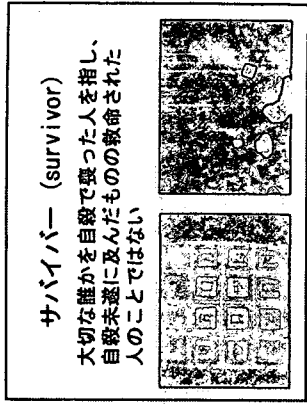 サバイバー (survivor)
大切な誰かを自殺で喪った人を指し、
自殺未遂に及んだものの救命された
人のことではない